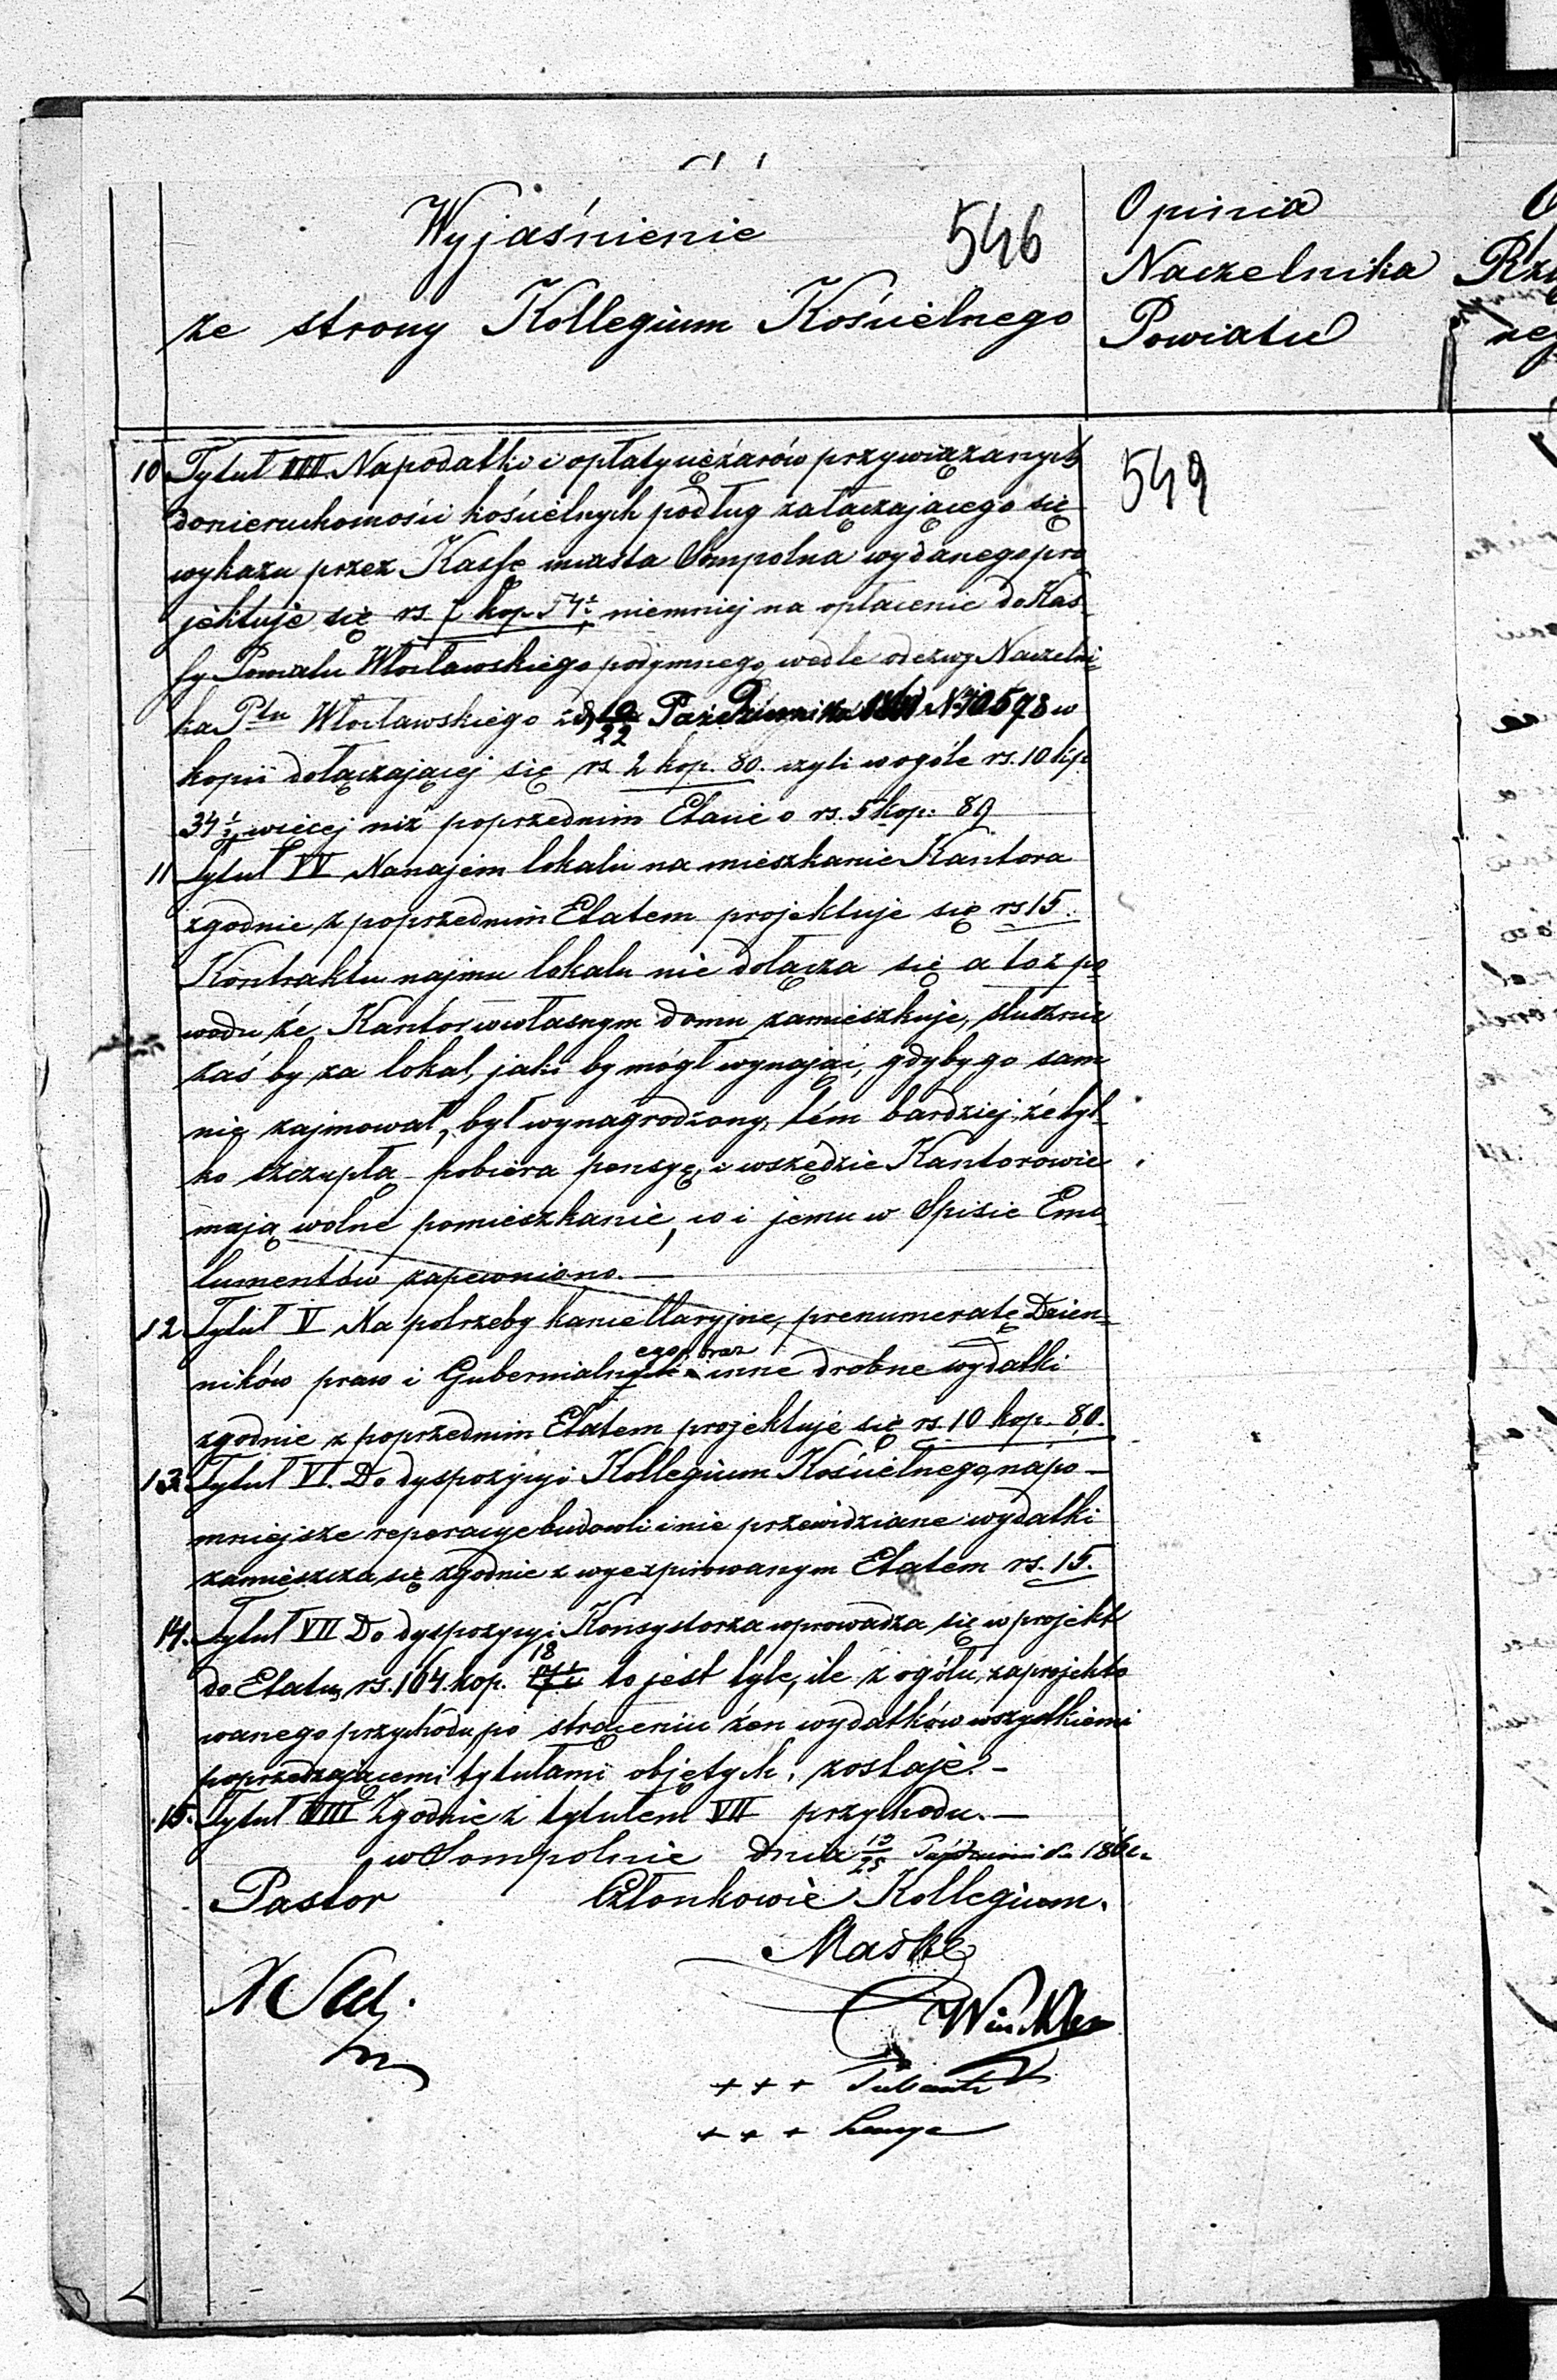 Wyjaśnienie
546
ze strony Kollegium Kościelnego
Opinia
Naczelnika
Powiatu
10 Tytuł III. Na podatki i opłaty ciężarów przywiązanych
do nieruchomości kościelnych podług załączającego się
wykazu przez Kassę miasta Sompolna wydanego pro
jektuje się rs 7 kop. 54½ niemniej na opłacenie do Kas-
sy Powiatu Włocławskiego podymnego, wedle odezwy Naczelni-
ka Ptu Włocławskiego z d. 10/22 Października No 10598 w
kopii dołączającej się rs. 2 kop. 80. czyli w ogóle rs. 10 kop
34½ więcej niż poprzednim Etacie o rs. 5 kop: 89
549
11 Tytuł IV Na najem lokalu na mieszkanie Kantora
zgodnie z poprzednim Etatem projektuje się rs 15.
Kontraktu najmu lokalu nie dołącza się a to z po
wodu że Kantor w własnym domu zamieszkuje, słusznie
zaś by za lokal, jaki by mógł wynająć, gdyby go sam
nie zajmował, był wynagrodzony, tém bardziej, że tyl-
ko szczupłą pobiera pensyę, i wszędzie Kantorowie
mają wolne pomieszkanie, co i jemu w Spisie Emo
lumentów zapewniono.—
12 Tytuł V Na potrzeby kancellaryjne, prenumeratę Dzien-
ego, oraz
ników praw i Gubernialnych i inne drobne wydatki
zgodnie z poprzednim Etatem projektuje się rs. 10 kop. 80.
13. Tytuł VI. Do dyspozycyi Kollegium Kościelnego, na po-
mniejsze reperacye budowli i nie przewidziane wydatki
zamieszcza się zgodnie z wyexpirowanym Etatem rs. 15.
14. Tytuł VII Do dyspozycyi Konsystorza wprowadza się w projekt
18
do Etatu, rs. 164. kop. to jest tyle, ile z ogółu, zaprojekto
wanego przychodu, po strąceniu zeń wydatków wszystkiemi
poprzedzającemi tytułami objętych, zostaje.—
15. Tytuł VIII Zgodnie z tytułem VII przychodu.—
w Sompolnie dnia 13/25 Października 186
Pastor Członkowie Kollegium.
Maske
Winkler
+ + +
+ + + Lange